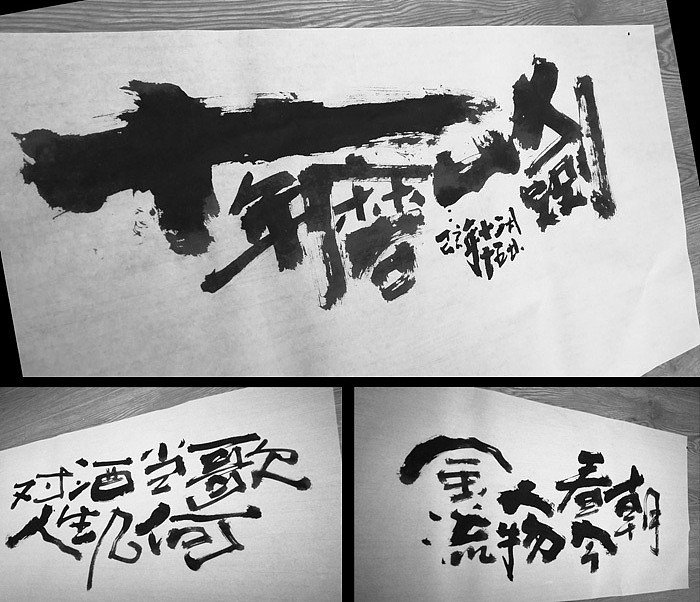 十年磨一剑
对酒当歌
人生几何
風流人物看今朝